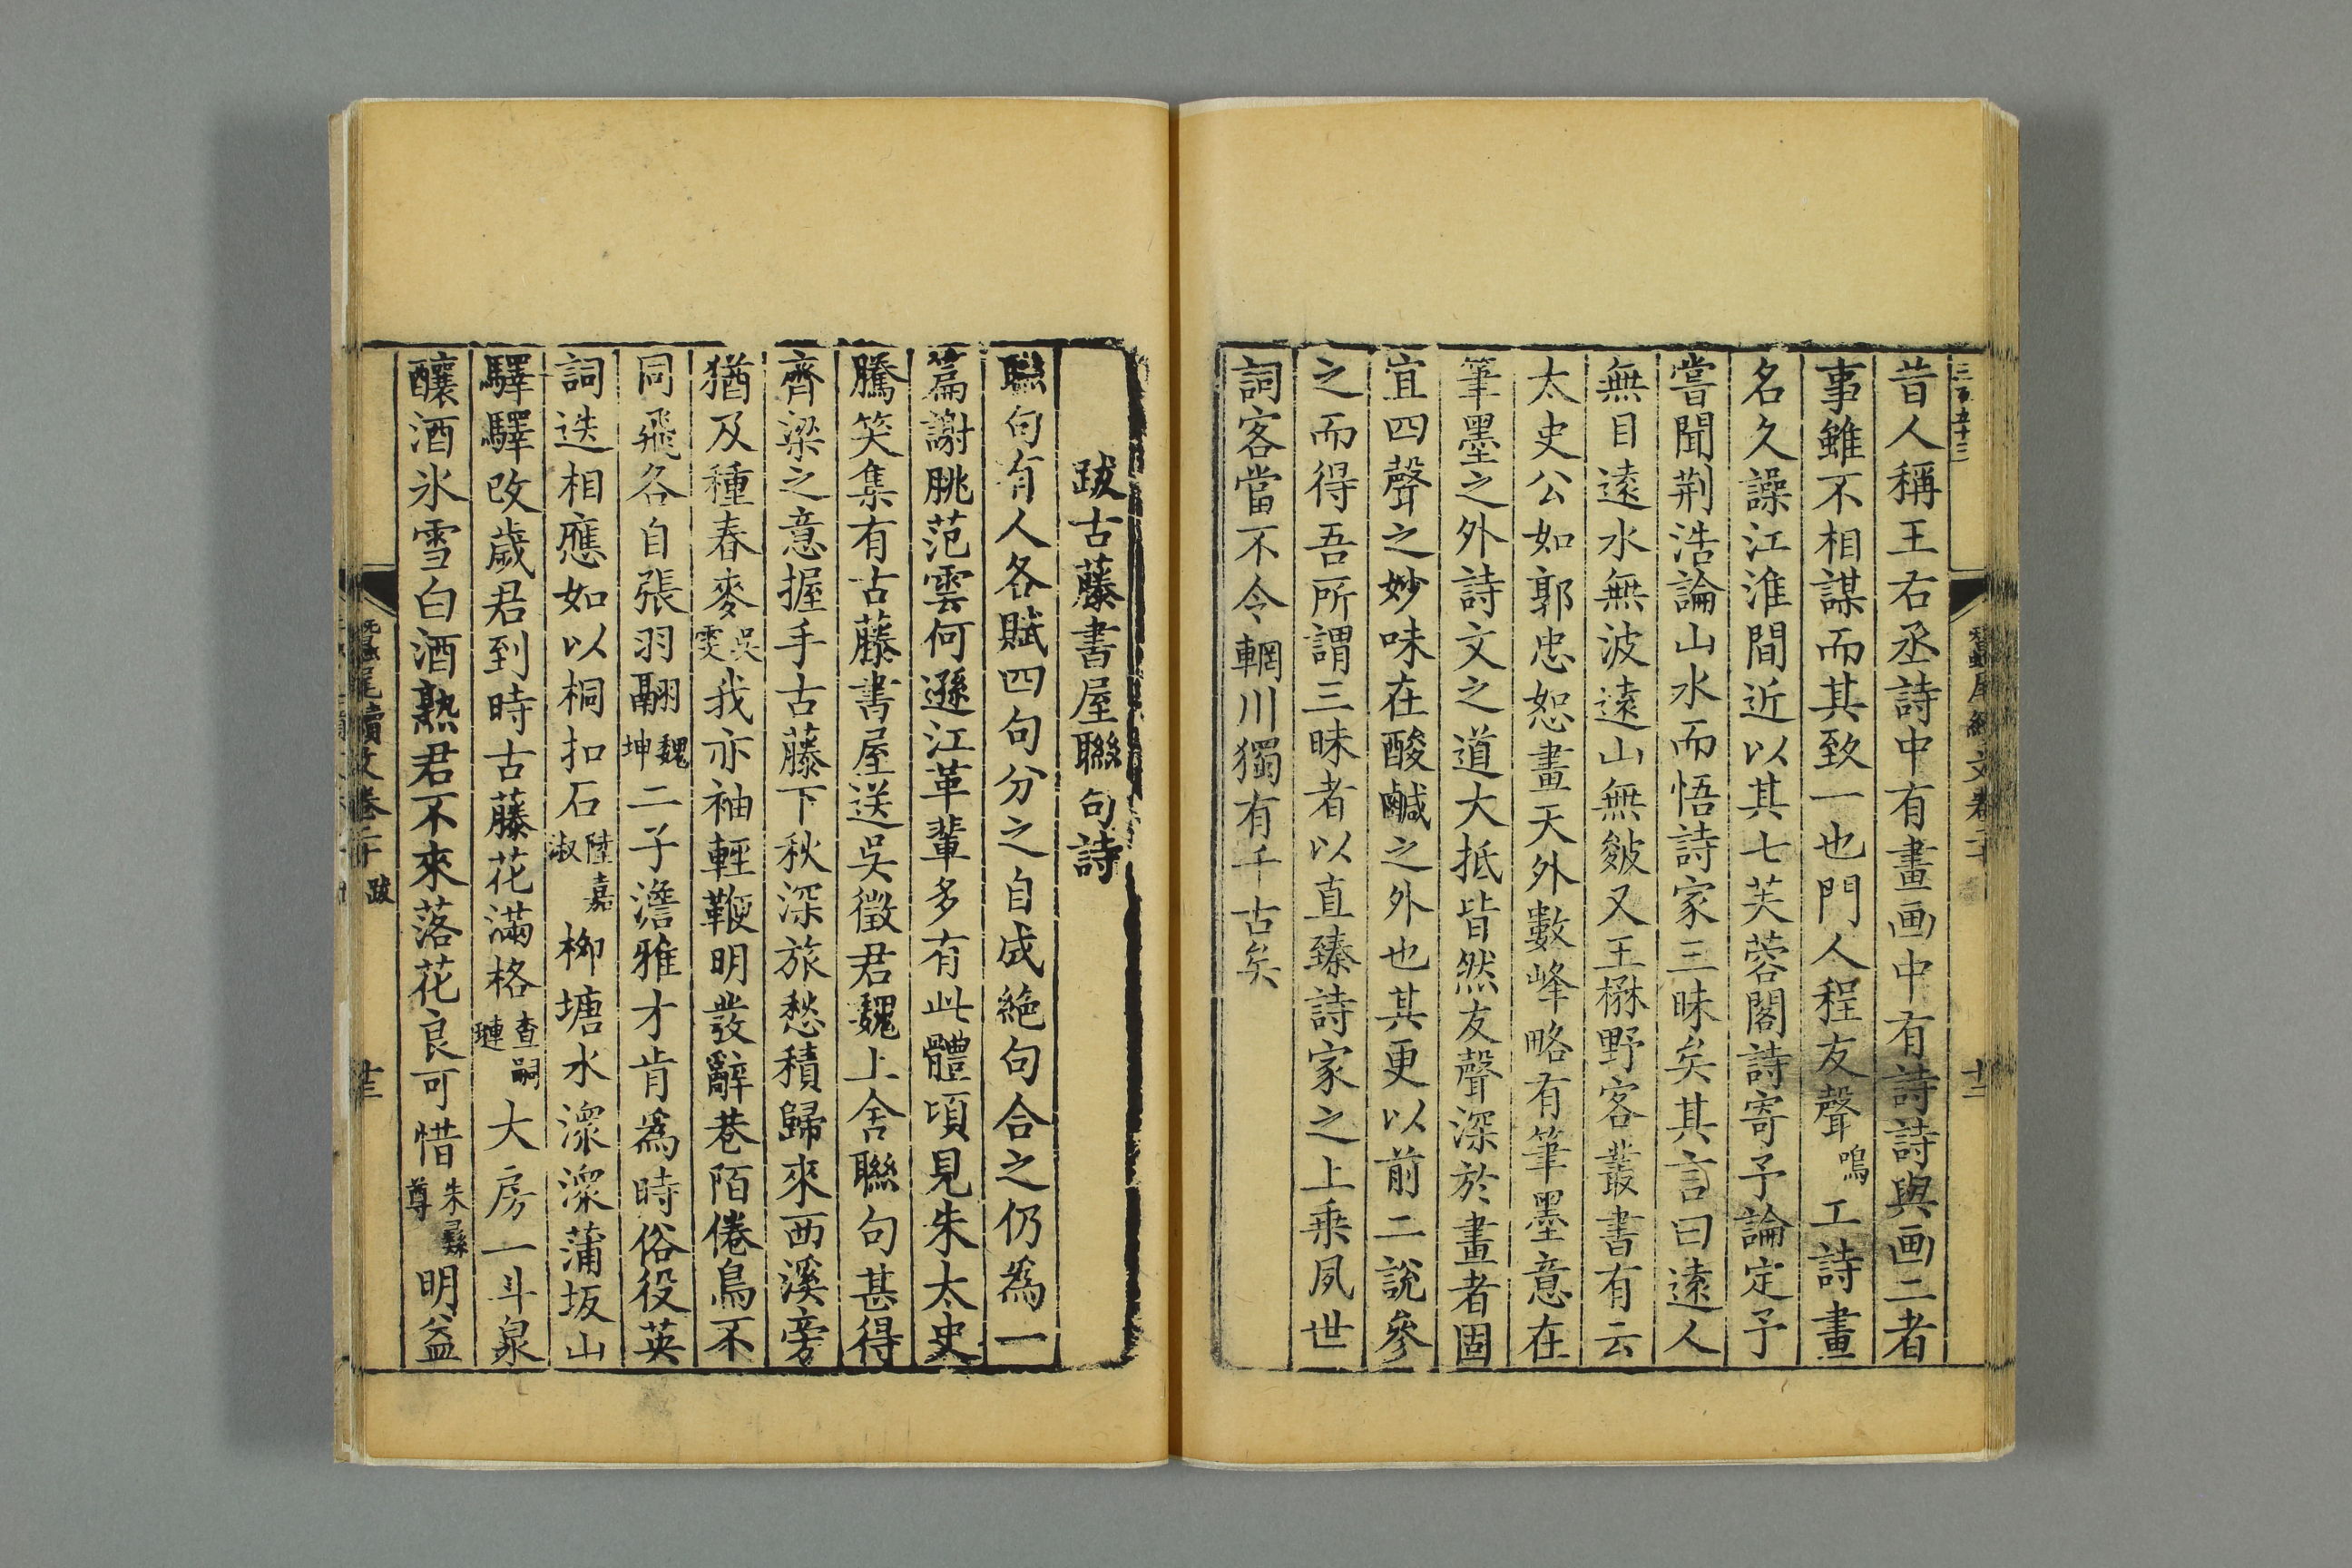 昔人稱王右丞詩中有畫画中有詩詩與画二者
事雖不相謀而其致一也門人程友聲鳴工詩畫
名久譟江淮間近以其七芙蓉閣詩寄予論定予
嘗聞荆浩論山水而悟詩家三昧矣其言曰遠人
無目遠水無波遠山無皴又王楙野客叢書有云
太史公如郭忠恕畫天外數峰略有筆墨意在
筆墨之外詩文之道大抵皆然友聲深於畫者固
宜四聲之妙味在酸鹹之外也其更以前二說參
之而得吾所謂三昧者以直臻詩家之上乘夙世
詞客當不令輞川獨有千古矣
跋古藤書屋聯句詩
聮句有人各賦四句分之自成絕句合之仍為一
篇謝朓范雲何遜江革輩多有此體頃見朱太史
騰笑集有古藤書屋送吳徵君魏上舍聯句甚得
齊梁之意握手古藤下秋深旅愁積歸來西溪旁
猶及種春麥吳雯我亦袖輕鞭明發辭巷陌倦鳥不
同飛各自張羽翮魏坤二子澹雅才肯為時俗役英
詞迭相應如以桐扣石陸嘉淑柳塘水濴濴蒲坂山
驛驛改歲君到時古藤花滿格查嗣璉大房一斗泉
釀酒氷雪白酒熟君不來落花良可惜朱彞尊明益
蠶尾續文卷二十 跋